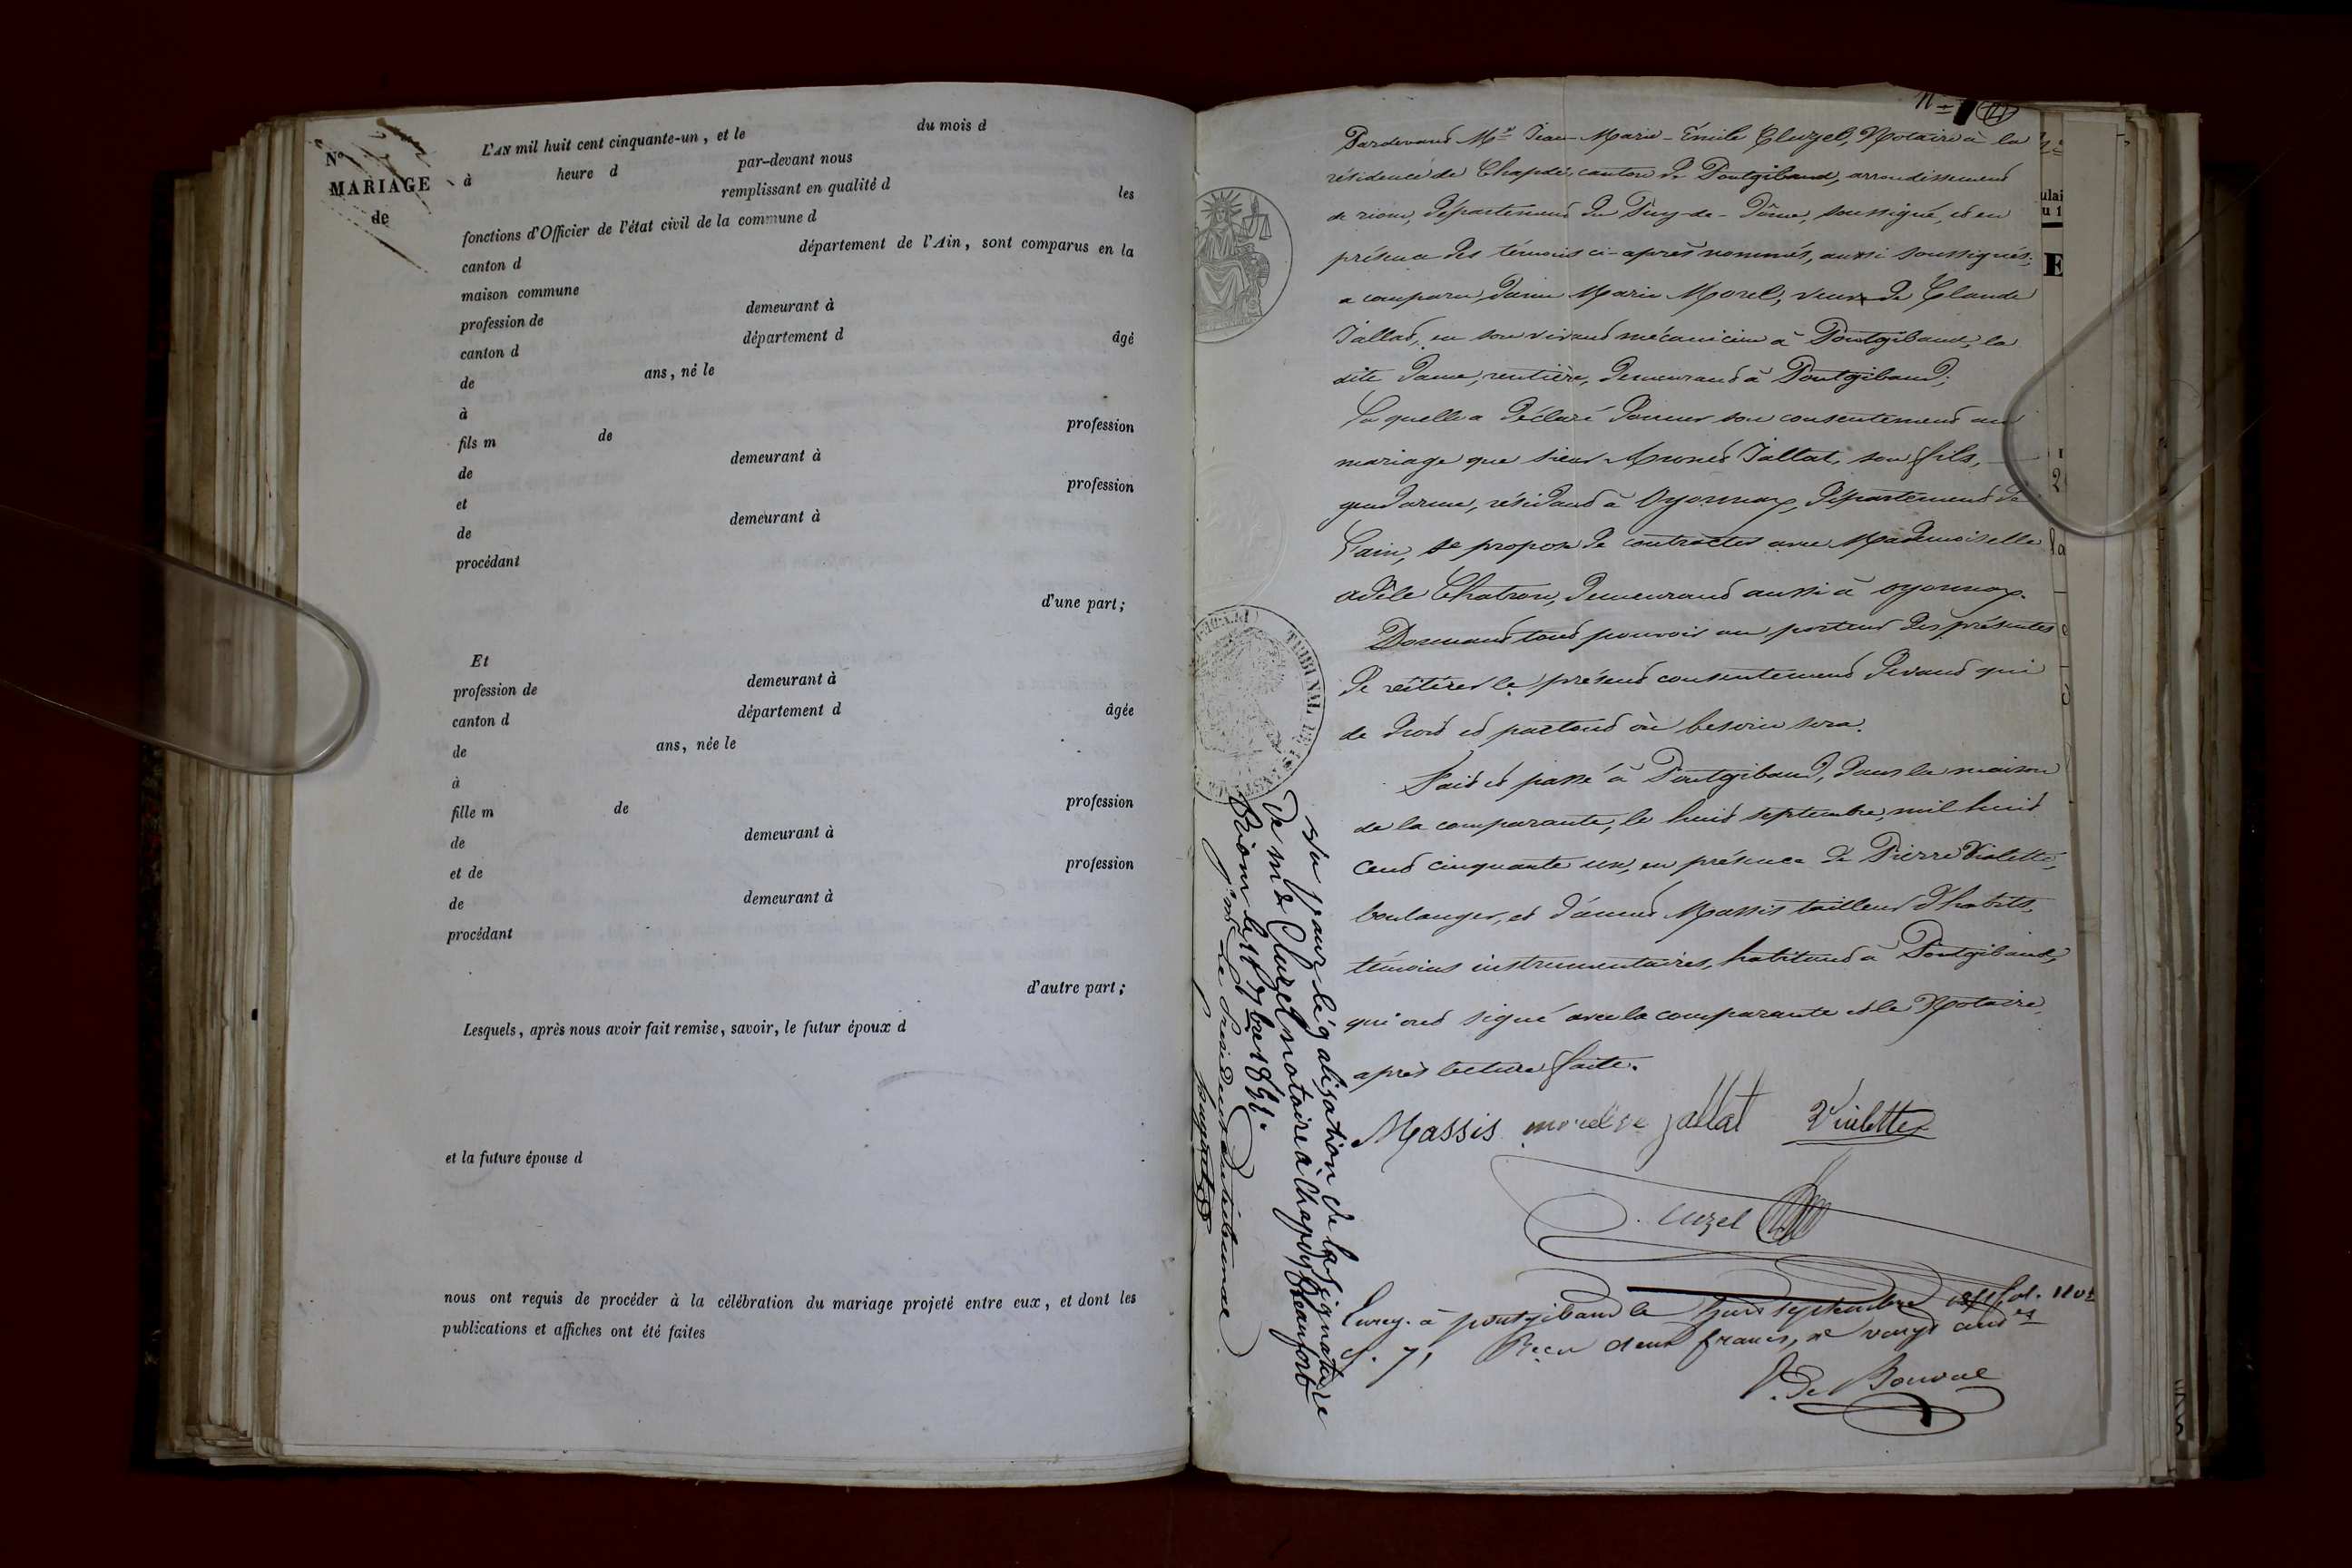 No
MARIAGE
de
L'AN mil huit cent cinquante-un, et le du mois d
à heure d par-devant nous
remplissant en qualité d les
fonctions d'Officier de l'état civil de la commune d
canton d département de l'Ain, sont comparus en la
maison commune
profession de demeurant à
canton d département d âgé
de ans, né le
à
fils m de profession
de demeurant à
et profession
de demeurant à
procédant
d'une part;
Et
profession de demeurant à
canton d département d âgée
de ans, née le
à
fille m de profession
de demeurant à
et de profession
de demeurant à
procédant
d'autre part;
Lesquels, après nous avoir fait remise, savoir, le futur époux d
et la future épouse d
nous ont requis de procéder à la célébration du mariage projeté entre eux, et dont les
publications et affiches ont été faites
Pardevant Me Jean-Marie-Émile Cluzel, Notaire à la
résidence de Chapdes, canton de Pontgibaud, arrondissement
de riom, département du Puy-de-Dôme, soussigné, et en
présence des témoins ci-après nommés, aussi soussignés;
a comparu, dame Marie Morel, veuve de Claude
Jallat, en son vivant mécanicien à Pontgibaud, la
dite dame, rentière, demeurant à Pontgibaud;
La quelle a déclaré donner son consentement au
mariage que sieur Jallat, son fils,
gendarme, résidant à Oyonnax, département de
l'ain, se propose de contracter avec Mademoiselle
adèle Chatron, demeurant aussi à oyonnax.
Donnant tout pouvoir au porteur des présentes
de réitérer le présent consentement devant qui
de droit et partout où besoin sera.
Fait et passé à Pontgibaud, dans la maison
de la comparante, le huit septembre, mil huit
cent cinquante un, en présence de Pierre Violette,
boulanger, et d'annet Massis tailleur d'habits,
témoins instrumentaires, habitant à Pontgibaud,
qui ont signé avec la comparante et le Notaire,
après lecture faite.
Massis morel ve jallat Violette
Cluzel
Enreg. à pontgibaud le huit septembre 1851 fol. 110
c. 7, Reçu deux francs, et vingt
V. de Bonval
Vu pour légalisation de la signature
de me Cluzel notaire à Chapdes Beaufort
Riom le 7bre 1851.
Le Président du tribunal
TRIBUNAL DE